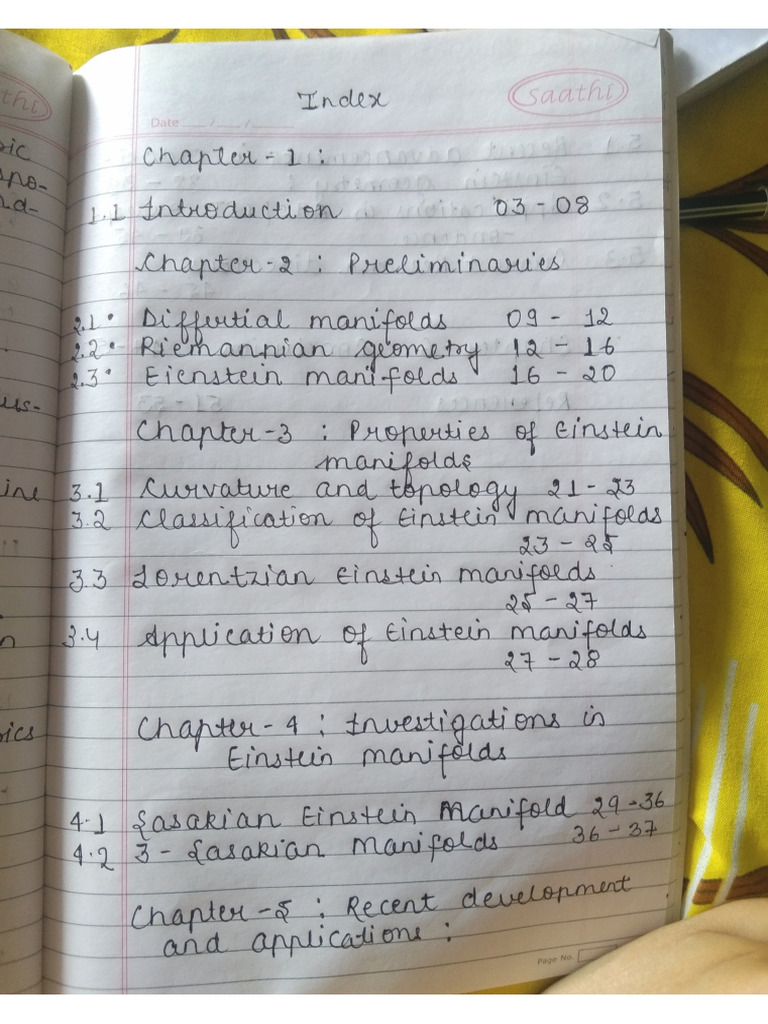 Index
Saathi
Date __/__/__
Chapter - 1 :
1.1 Introduction 03 - 08
Chapter - 2 : Preliminaries
2.1 • Differtial manifolds 09 - 12
2.2 • Riemannian geometry 12 - 16
2.3 • Eienstein manifolds 16 - 20
Chapter - 3 : Properties of Einstein
manifolds
3.1 Curvature and topology 21 - 23
3.2 Classification of Einstein manifolds
23 - 25
3.3 Lorentzian Einstein manifolds
25 - 27
3.4 Application of Einstein manifolds
27 - 28
Chapter - 4 : Investigations in
Einstein manifolds
4.1 Sasakian Einstein Manifold 29 - 36
4.2 3 - Sasakian Manifolds 36 - 37
Chapter - 5 : Recent development
and applications :
Page No.